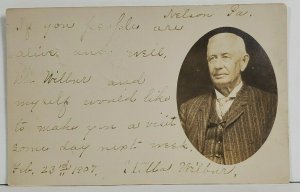 Nelson Pa.
If you people are
alive and well,
Mr. Wilbur and
myself would like
to make you a visit
some day next week.
Feb. 23rd 1907. Wilbur,